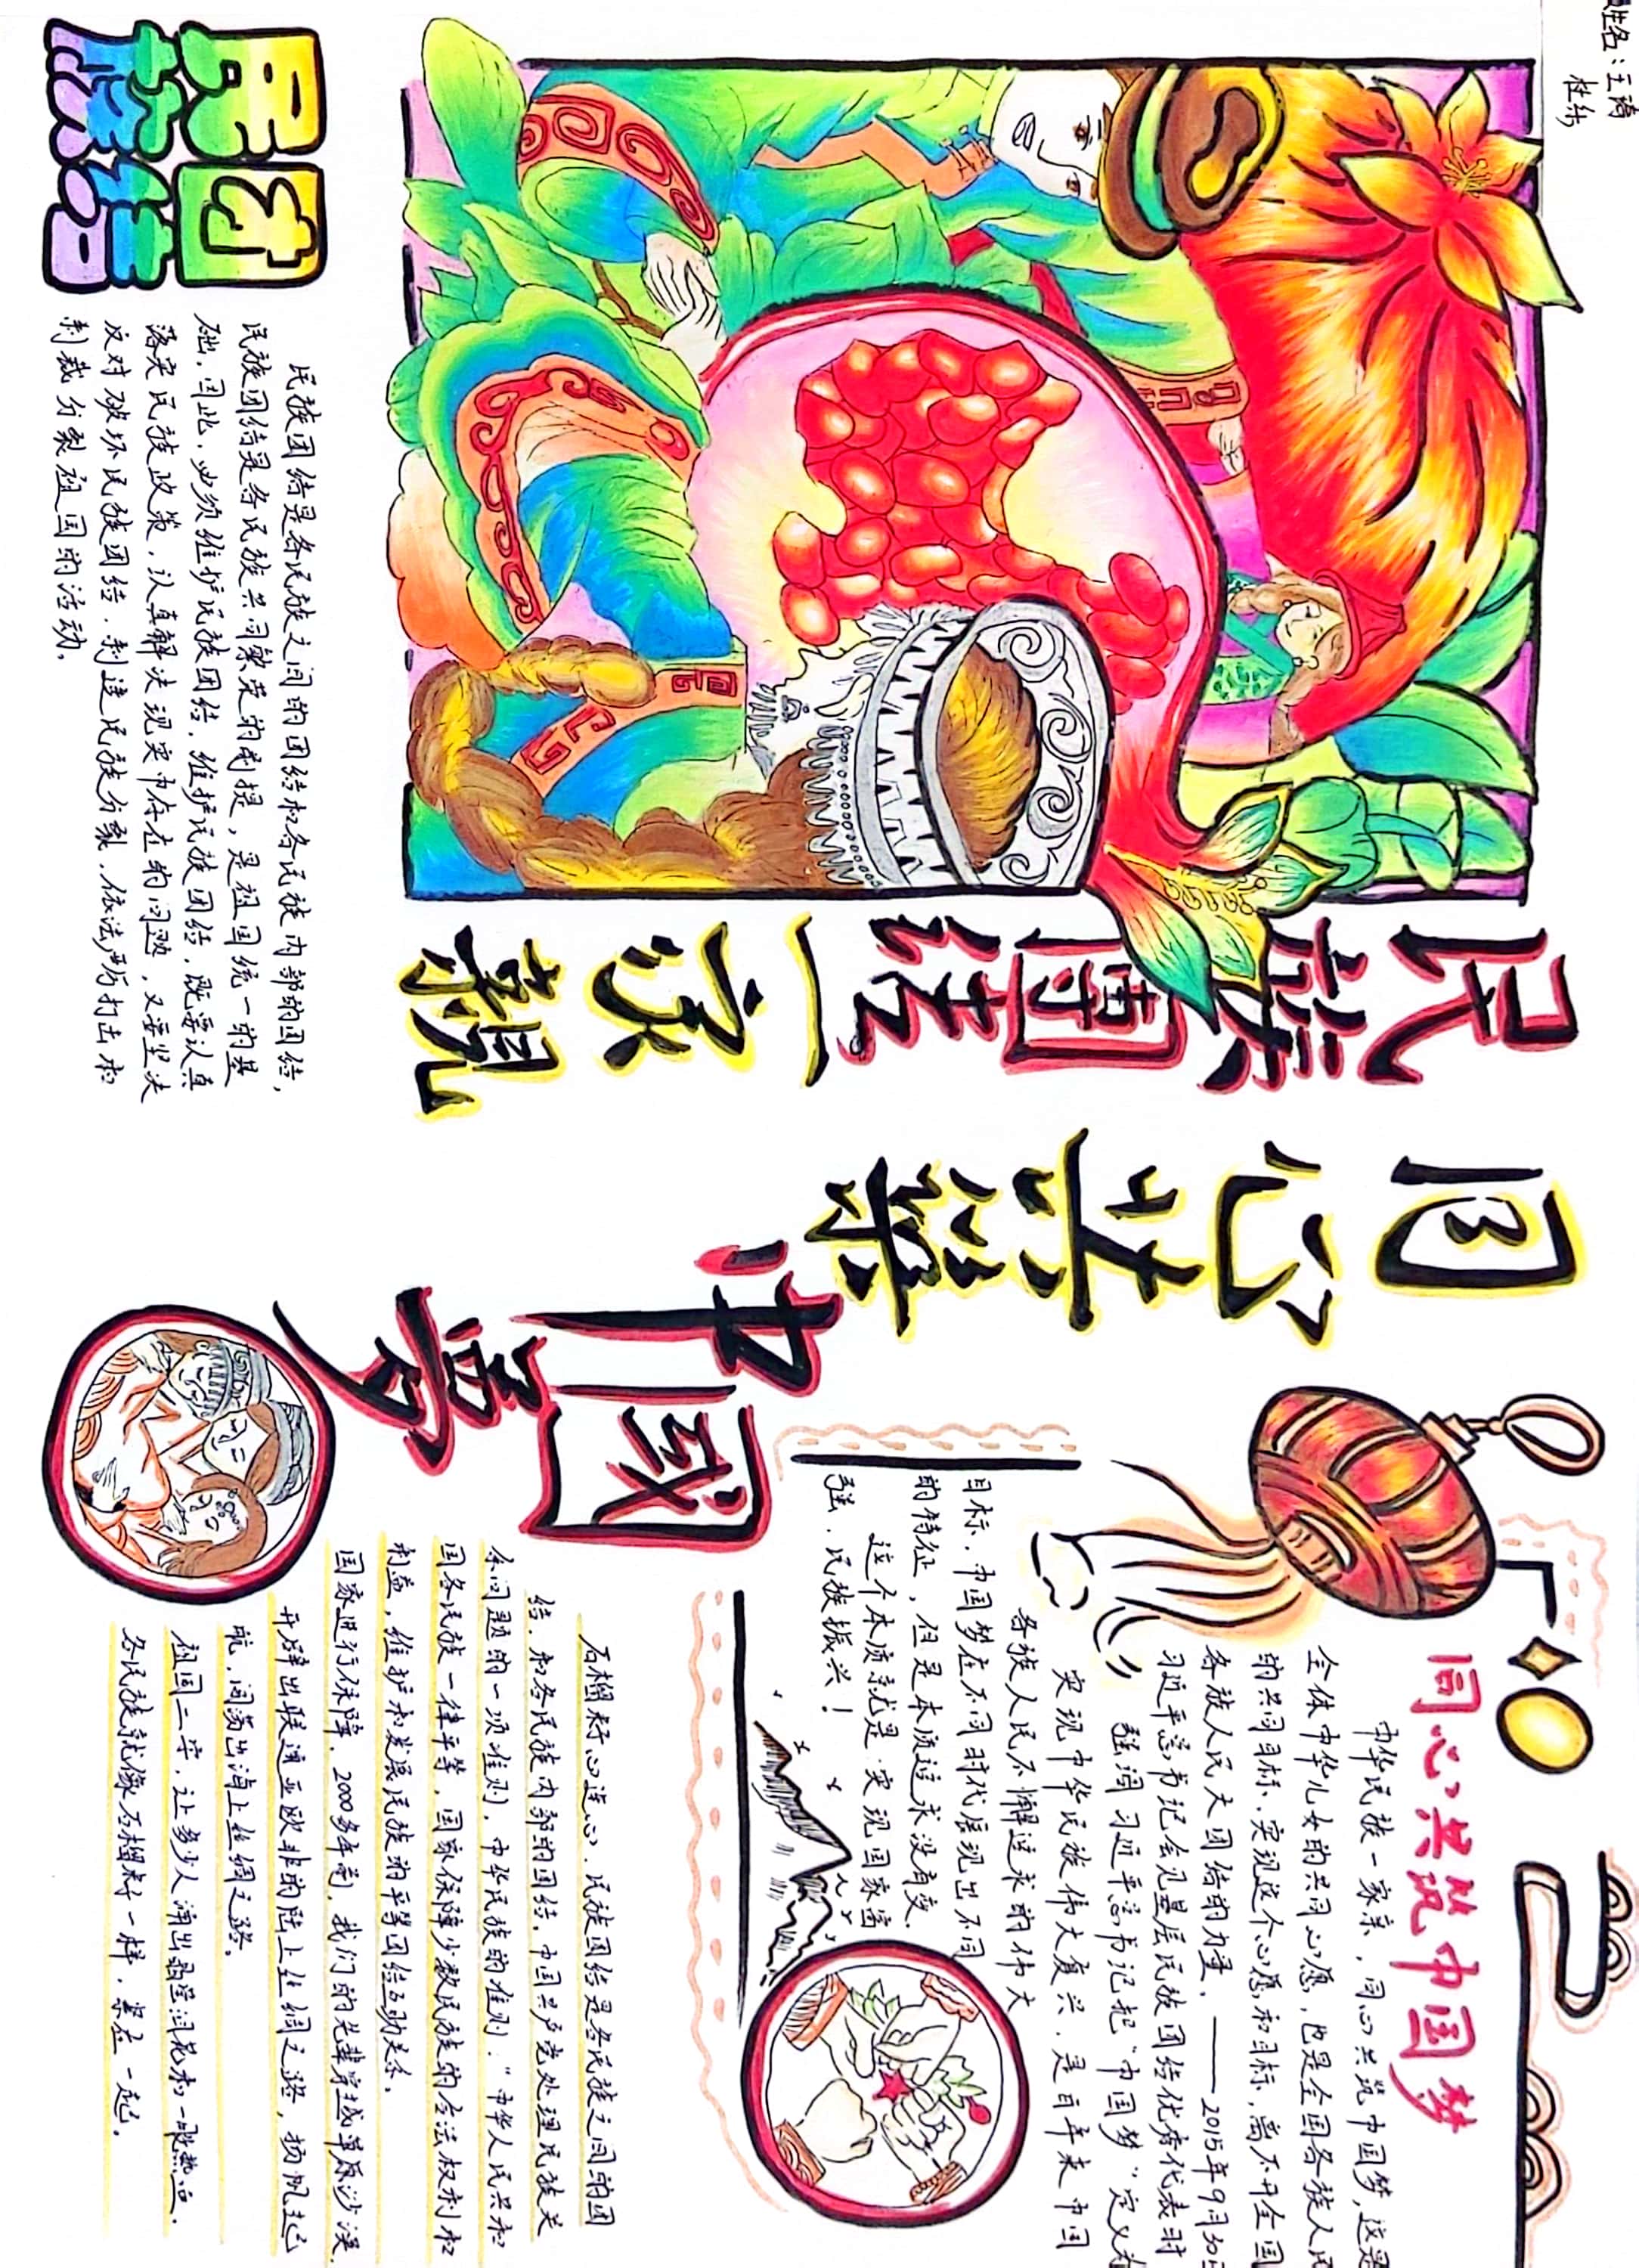 姓名：王琦
桂纷
民族團結一家親
同心共築
中國夢
民族团结
民族团结是各民族之间的团结和各民族内部的团结，
民族团结是各民族共同繁荣的前提，是祖国统一的基
础，因此，必须维护民族团结，维护民族团结，既要认真
落实民族政策，认真解决现实中存在的问题，又要坚决
反对破坏民族团结，制造民族分裂，依法严厉打击和
制裁分裂祖国的活动。
同心共筑中国梦
中华民族一家亲，同心共筑中国梦，这是
全体中华儿女的共同心愿，也是全国各族人民
的共同目标，实现这个心愿和目标，离不开全国
各族人民大团结的力量。——2015年9月30日
习近平总书记会见基层民族团结优秀代表时
强调习近平总书记把“中国梦”定义为
实现中华民族伟大复兴，是百年来中国
各族人民不懈追求的伟大
目标，中国梦在不同时代展现出不同
的特征，但是本质追求没有变，
这个本质就是：实现国家富
强，民族振兴！
石榴籽心连心，民族团结是各民族之间的团
结，和各民族内部的团结，中国共产党处理民族关
系问题的一项准则，中华民族的准则：“中华人民共和
国各民族一律平等，国家保障少数民族的合法权利和
利益，维护和发展民族的平等团结互助关系。
国家进行保障，2000多年前，我们的先辈穿越草原沙漠，
开辟出联通亚欧非的陆上丝绸之路，扬帆起
航，闯荡出海上丝绸之路。
祖国二字，让多少人涌出翻江泪花和一腔热血，
各民族就像石榴籽一样，紧在一起。